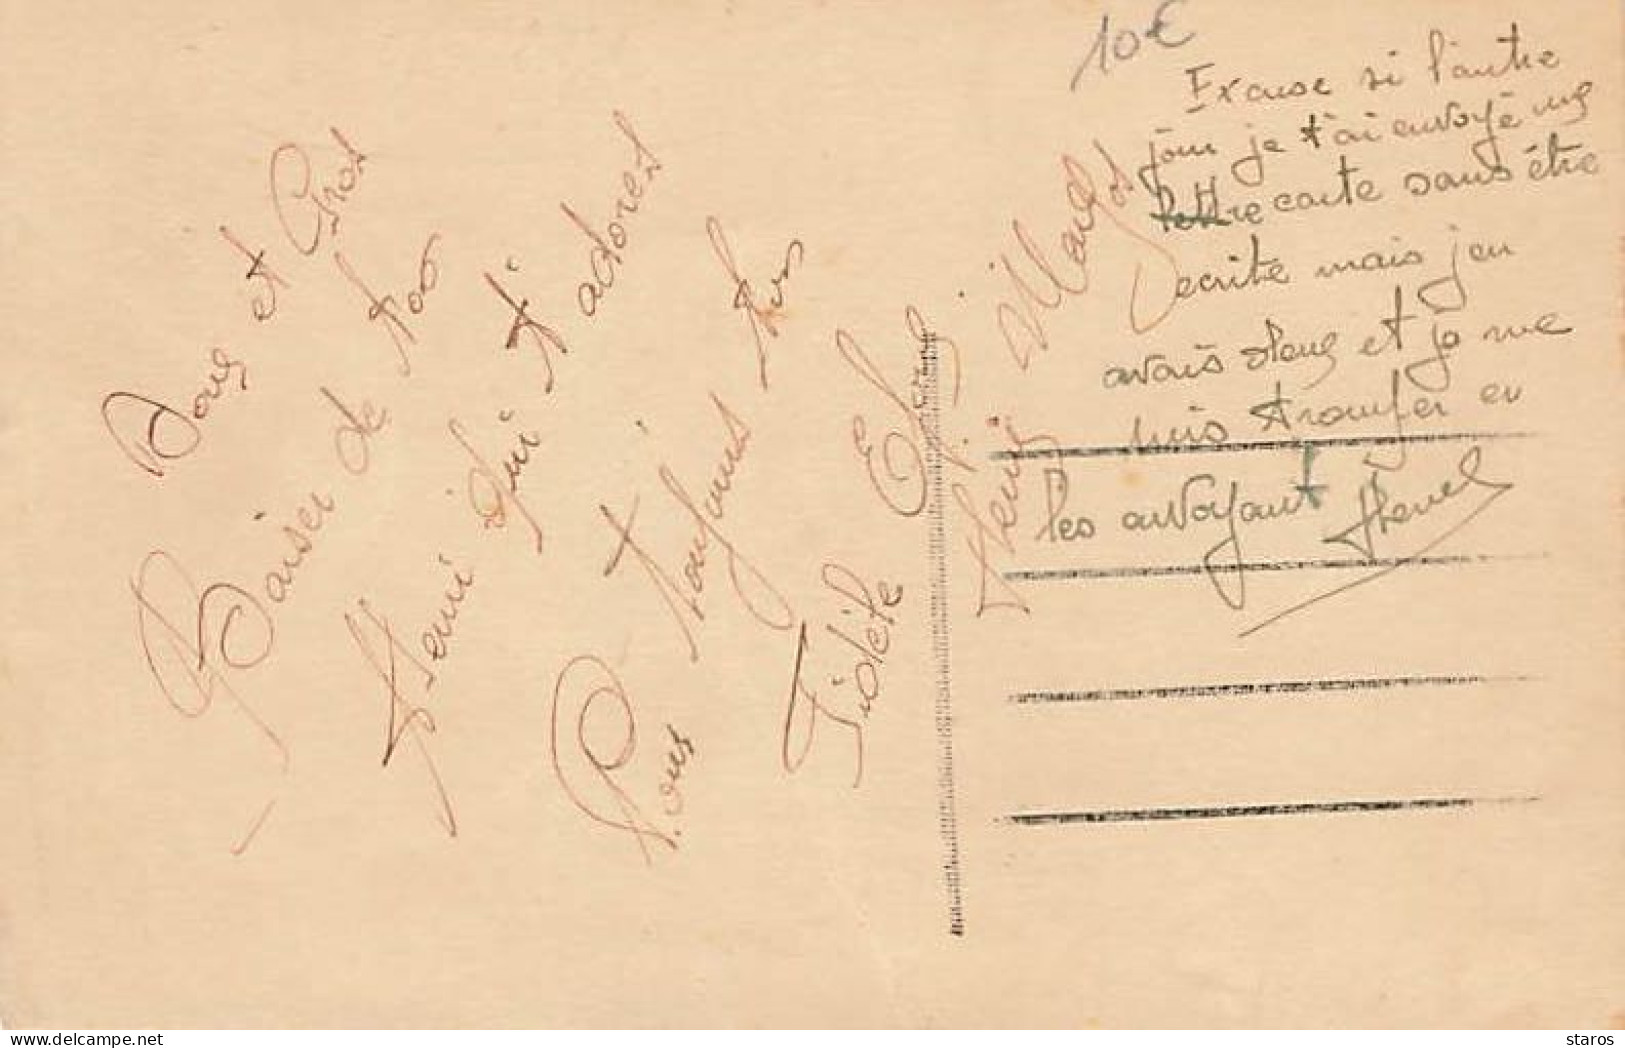 Doux et Gros
Baiser de toô
Henri qui t'adores
Pour toujours ton
Fidèle
Henri Margot
10€
Excuse si l'autre
jour je t'ai envoyé une
lettre carte sans être
ecrite mais j'en
avais deux et je me
suis tromper en
les envoyant Henri
delcampe.net
staros